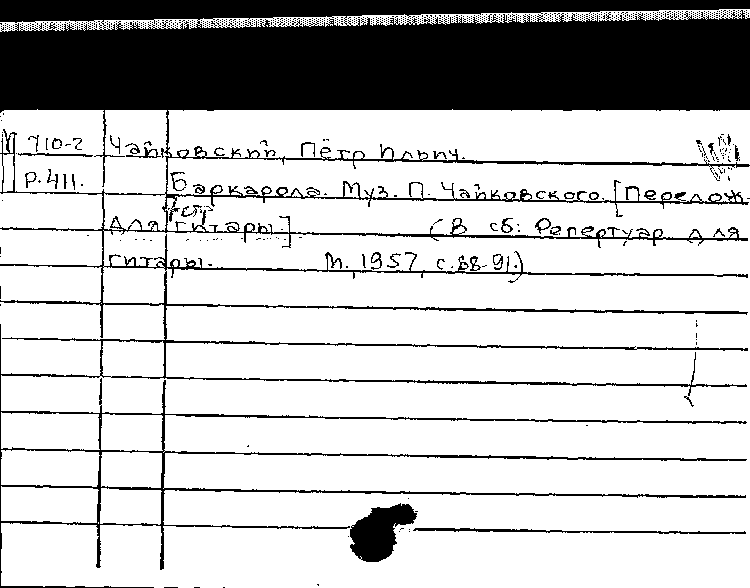 М 710-2 Чайковский, Пётр Ильич.
Р.411. Баркарола. Муз. П. Чайковского. [Перелож.
7стр
для гитары] (В сб: Репертуар для
гитары. М., 1957, с.88-91.)